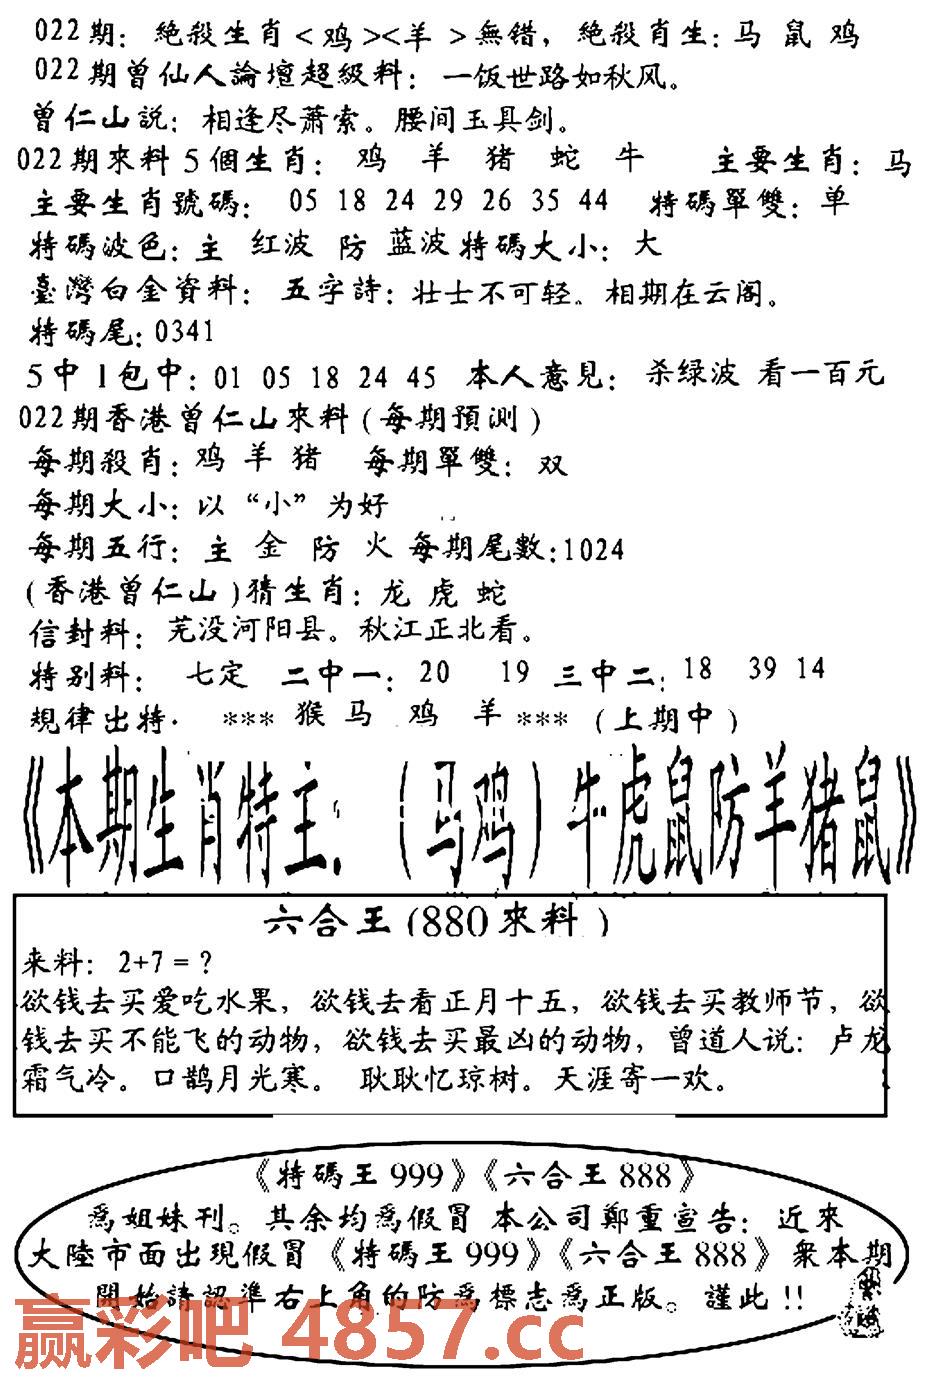 022期: 絶殺生肖<鸡><羊>無错, 絶殺肖生:马 鼠 鸡
022期曾仙人論壇超級料: 一饭世路如秋风。
曾仁山説: 相逢尽萧索。腰间玉具剑。
022期來料5個生肖: 鸡 羊 猪 蛇 牛 主要生肖: 马
主要生肖號碼: 05 18 24 29 26 35 44 特碼單雙: 单
特碼波色: 主 红波 防 蓝波 特碼大小: 大
臺灣白金資料: 五字詩: 壮士不可轻。相期在云阁。
特碼尾:0341
5中1包中: 01 05 18 24 45 本人意見: 杀绿波 看一百元
022期香港曾仁山來料(每期預测)
每期殺肖: 鸡 羊 猪 每期單雙: 双
每期大小: 以“小”为好
每期五行: 主 金 防 火 每期尾數:1024
(香港曾仁山)猜生肖: 龙 虎 蛇
信封料: 芜没河阳县。秋江正北看。
特别料: 七定 二中一: 20 19 三中二: 18 39 14
規律出特· *** 猴 马 鸡 羊 *** (上期中)
《本期生肖特主:(马鸡)牛虎鼠防羊猪鼠》
六合王(880來料)
来料: 2+7=?
欲钱去买爱吃水果, 欲钱去看正月十五, 欲钱去买教师节, 欲
钱去买不能飞的动物, 欲钱去买最凶的动物, 曾道人说: 卢龙
霜气冷。口鹊月光寒。 耿耿忆琼树。天涯寄一欢。
《特碼王999》《六合王888》
爲姐妹刊。其余均爲假冒 本公司鄭重宣告: 近來
大陸市面出現假冒《特碼王999》《六合王888》衆本期
開始請認準右上角的防爲標志爲正版。謹此!!
赢彩吧 4857.cc